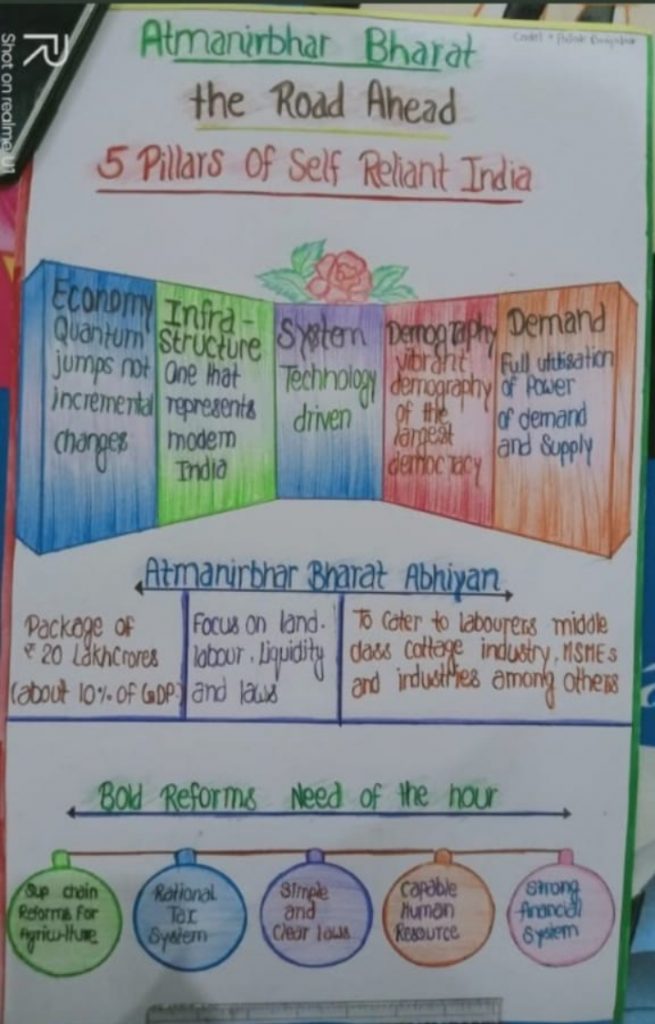 Atmanirbhar Bharat
the Road Ahead
5 Pillars Of Self Reliant India
Economy
Quantum
jumps not
incremental
changes
Infra-
structure
One that
represents
modern
India
System
Technology
driven
Demography
vibrant
demography
of the
largest
democracy
Demand
Full utilisation
of Power
of demand
and Supply
Atmanirbhar Bharat Abhiyan
Package of
₹ 20 Lakhcrores
(about 10% of GDP)
Focus on land.
labour. Liquidity
and laws
To cater to labourers middle
class cottage industry, MSMEs
and industries among others
Bold Reforms Need of the hour
Sup chain
Reforms For
Agriculture
Rational
Tax
System
Simple
and
Clear laws
Capable
Human
Resource
Strong
financial
System
R
Shot on realme U1